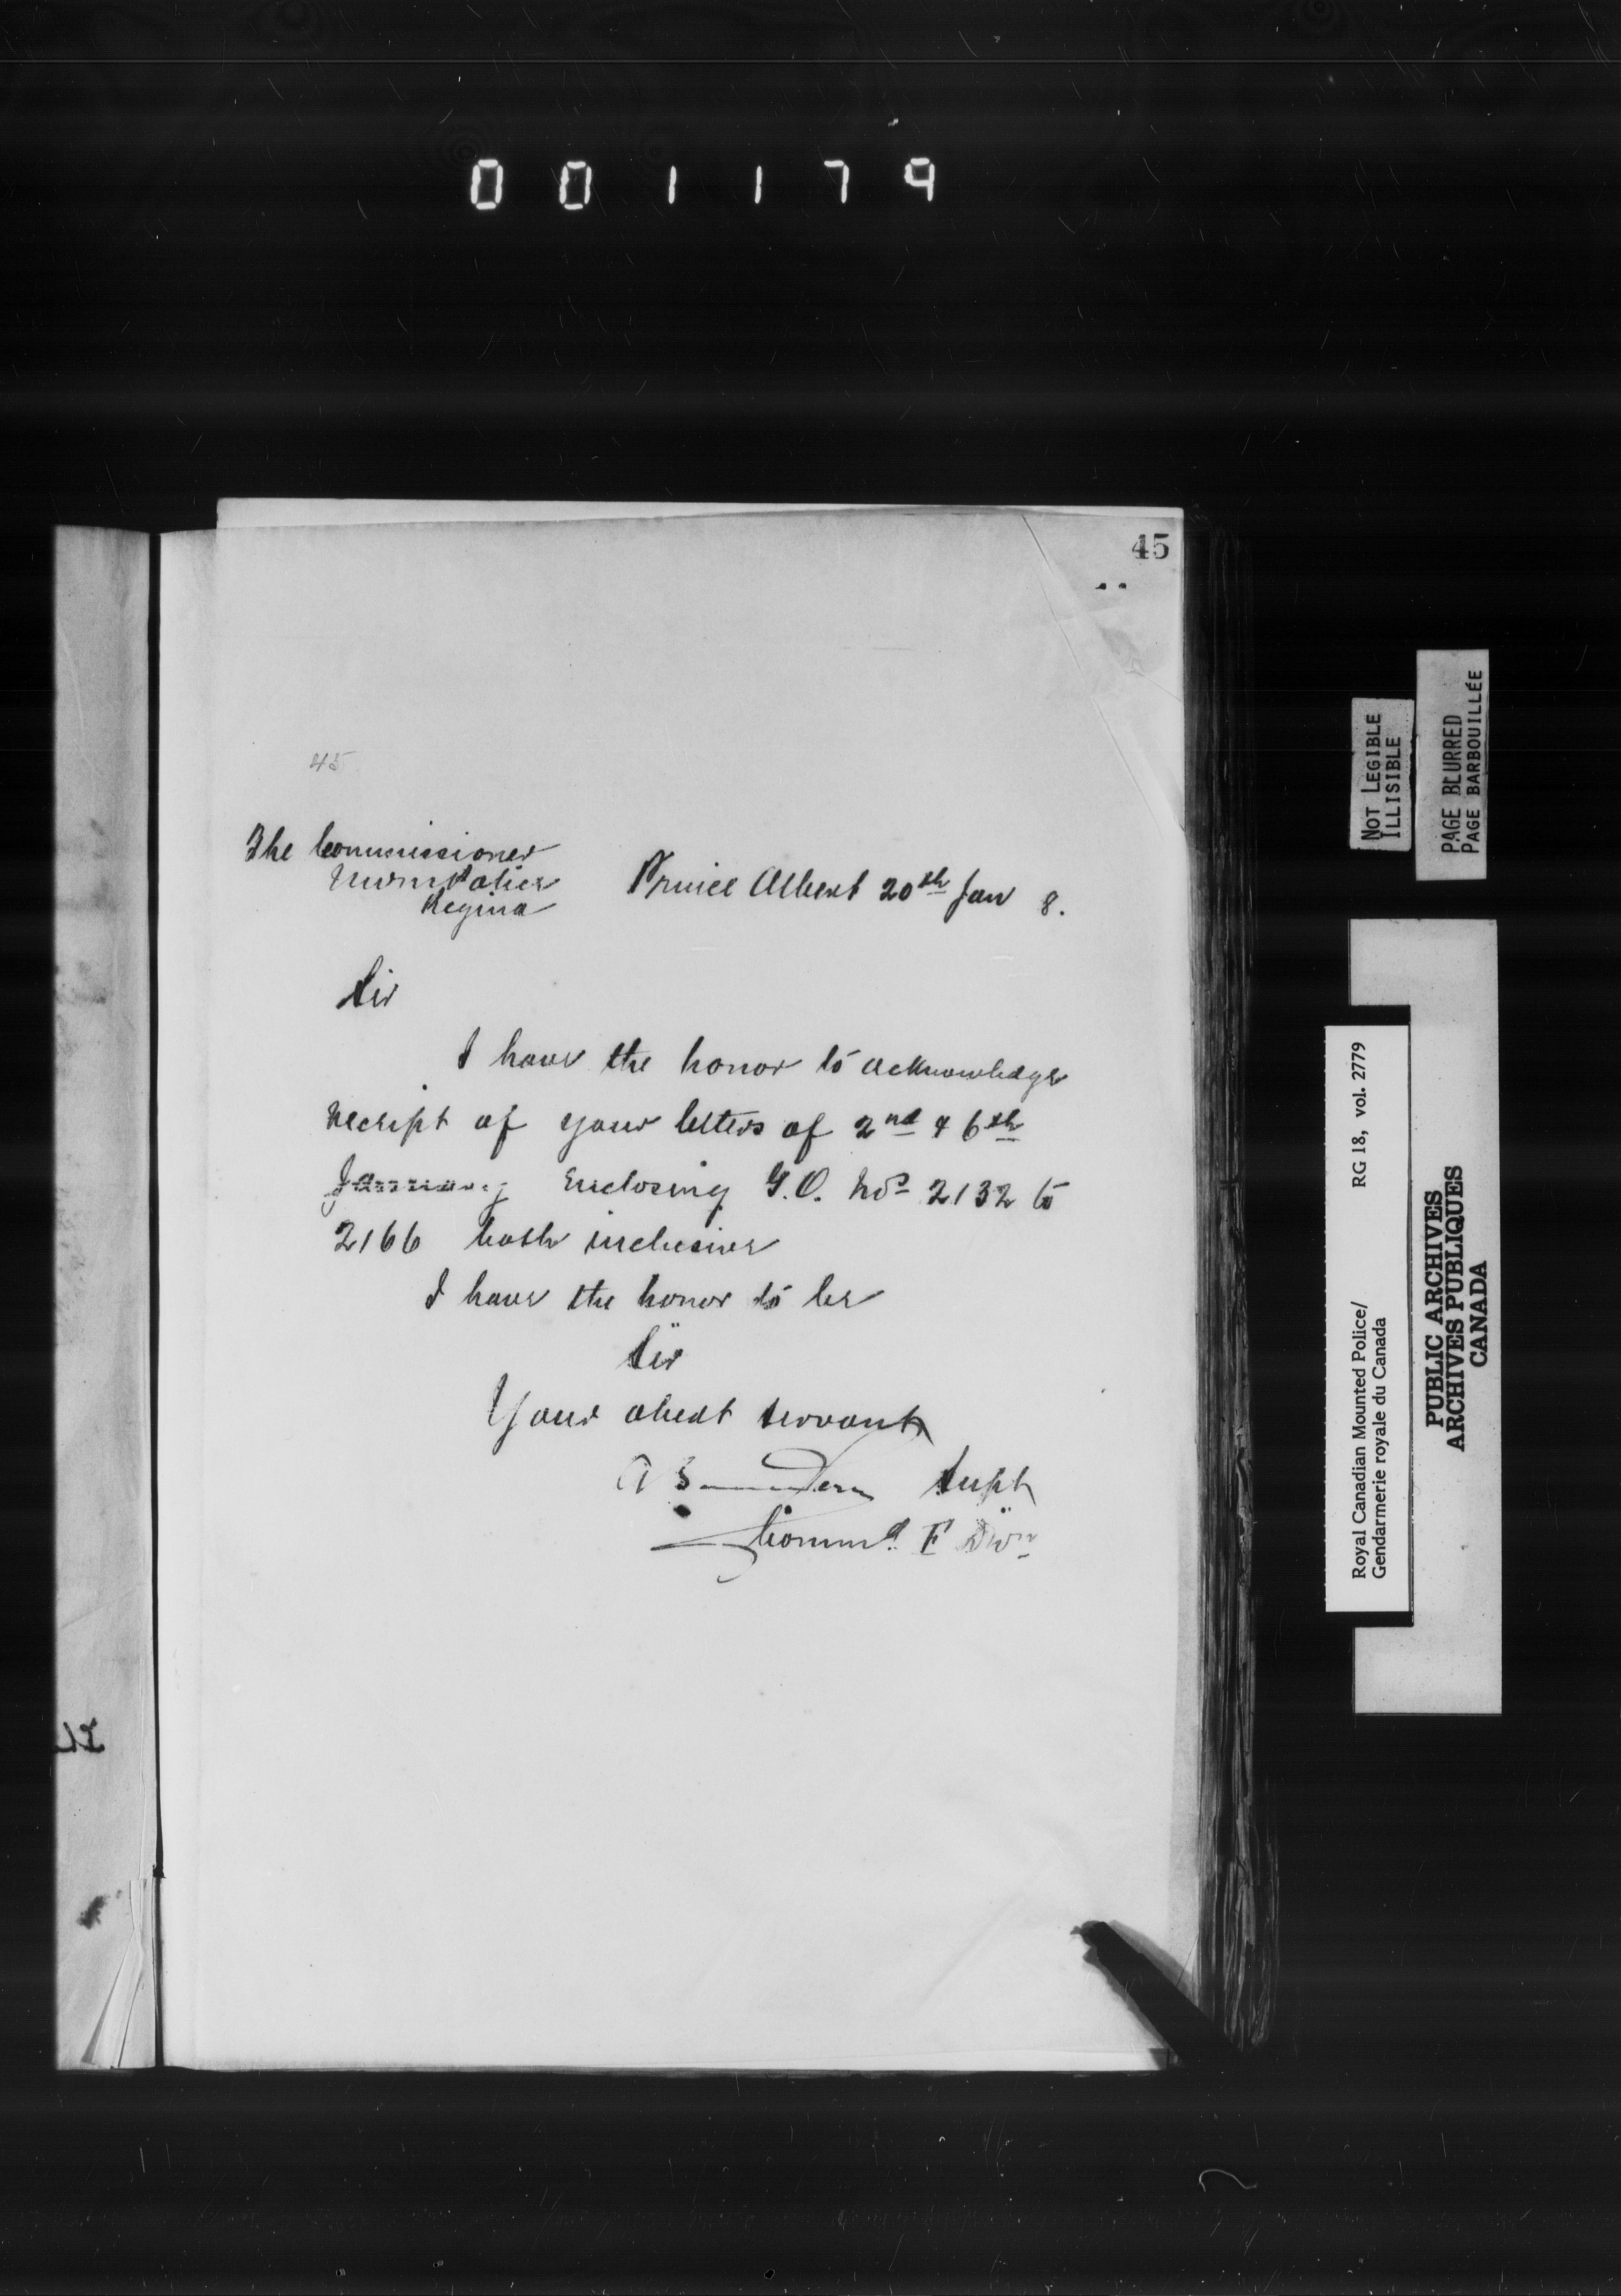 001179
45
45
The Commissioner
NWM Police
Regina
Prince Albert 20th Jan 8.
Sir
I have the honor to acknowledge
receipt of your letters of 2nd & 6th
January Enclosing G.O. Nos 2132 to
2166 both inclusive
I have the honor to be
Sir
Your obedt servant
Supt
Commd. F Divn
NOT LEGIBLE
ILLISIBLE
PAGE BLURRED
PAGE BARBOUILLÉE
Royal Canadian Mounted Police/ RG 18, vol. 2779
Gendarmerie royale du Canada
PUBLIC ARCHIVES
ARCHIVES PUBLIQUES
CANADA